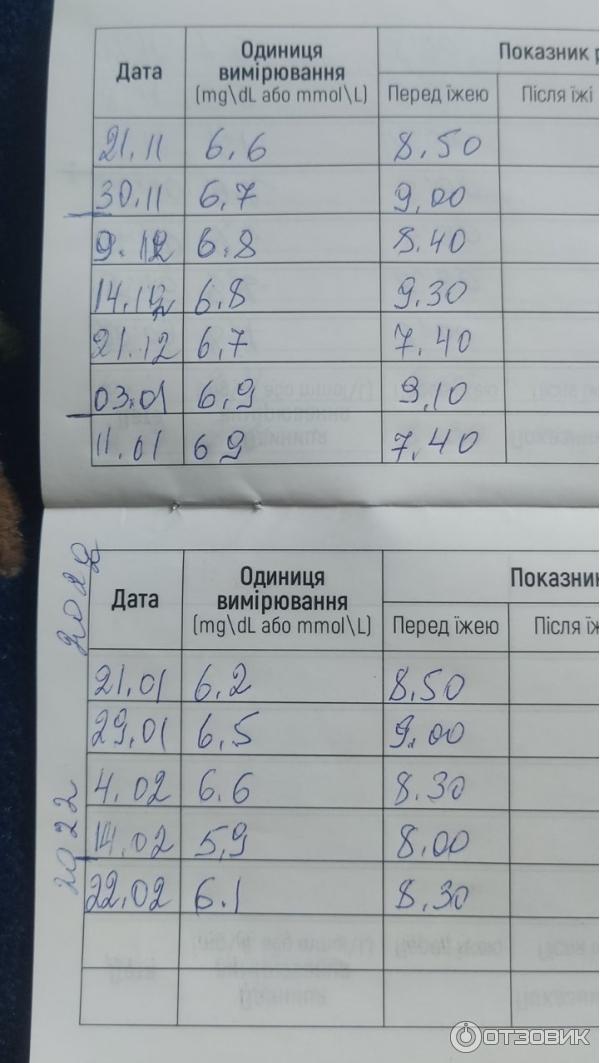 Дата Одиниця вимірювання (mg\dL або mmol\L) Показник р
Перед їжею Після їжі
21.11 6.6 8.50
30.11 6,7 9,00
9.12 6.8 8.40
14.12 6.8 9.30
21.12 6,7 7.40
03.01 6,9 9,10
11.01 69 7.40
2022
Дата Одиниця вимірювання (mg\dL або mmol\L) Показник
Перед їжею Після їж
21.01 6.2 8.50
29.01 6.5 9.00
4.02 6.6 8.30
2022
14.02 5,9 8.00
22.02 6.1 8.30
ОТЗОВИК